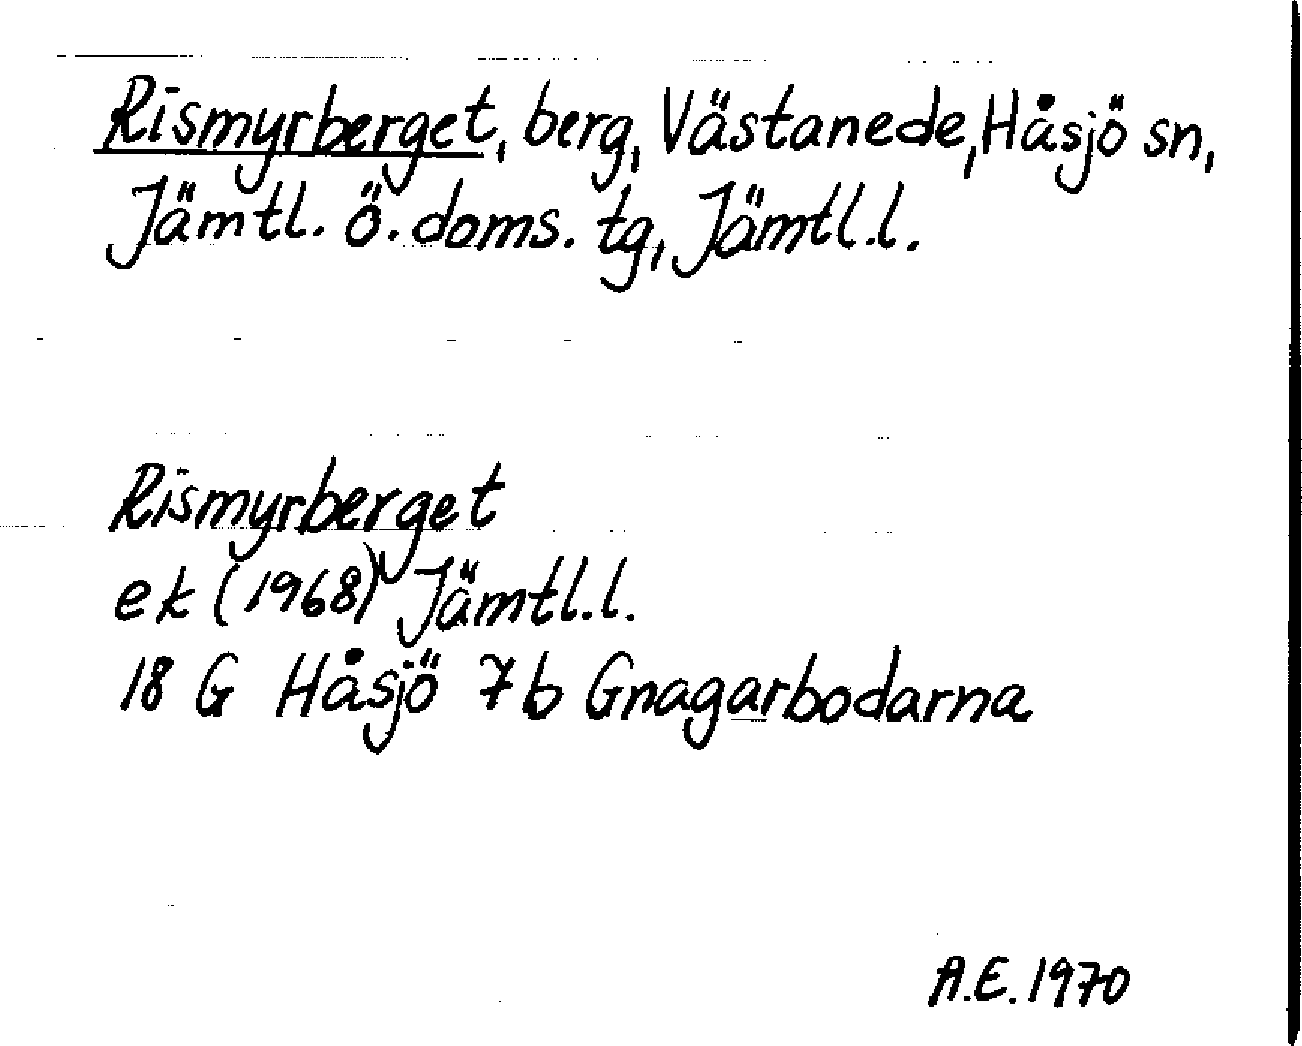 Rismyrberget, berg, Västanede, Håsjö sn,
Jämtl. ö. doms. tg, Jämtl.l.
Rismyrberget
ek (1968) Jämtl.l.
18 G Håsjö 7b Gnagarbodarna
A.E. 1970